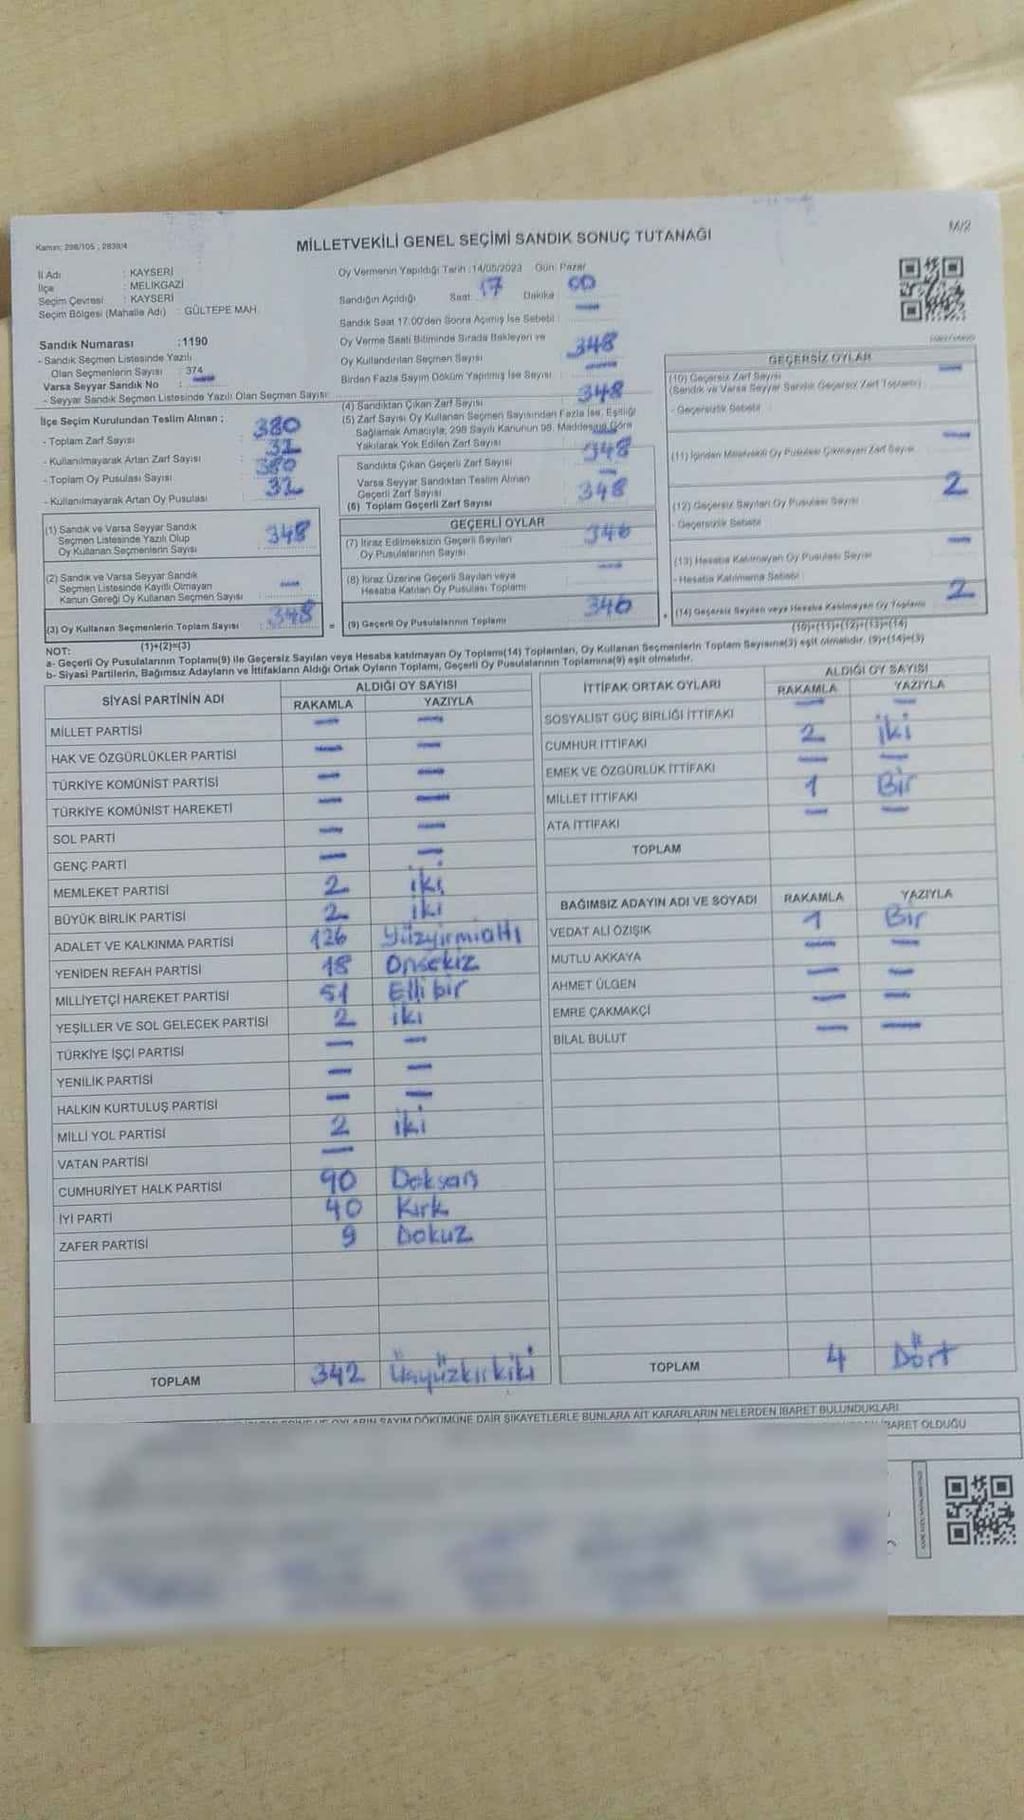 M/2
Kanun: 298/105 ; 2839/4
MİLLETVEKİLİ GENEL SEÇİMİ SANDIK SONUÇ TUTANAĞI
İl Adı : KAYSERİ
İlçe : MELİKGAZİ
Seçim Çevresi : KAYSERİ
Seçim Bölgesi (Mahalle Adı) : GÜLTEPE MAH.
Oy Vermenin Yapıldığı Tarih :14/05/2023 Gün: Pazar
Sandığın Açıldığı Saat: 17 Dakika 00
Sandık Saat 17:00'den Sonra Açılmış İse Sebebi : —
Sandık Numarası :1190
- Sandık Seçmen Listesinde Yazılı
Olan Seçmenlerin Sayısı : 374
Varsa Seyyar Sandık No : —
- Seyyar Sandık Seçmen Listesinde Yazılı Olan Seçmen Sayısı:
Oy Verme Saati Bitiminde Sırada Bekleyen ve
Oy Kullandırılan Seçmen Sayısı 348
Birden Fazla Sayım Döküm Yapılmış İse Sayısı : —
İlçe Seçim Kurulundan Teslim Alınan ;
- Toplam Zarf Sayısı : 380
- Kullanılmayarak Artan Zarf Sayısı : 32
- Toplam Oy Pusulası Sayısı : 380
- Kullanılmayarak Artan Oy Pusulası : 32
(1) Sandık ve Varsa Seyyar Sandık
Seçmen Listesinde Yazılı Olup
Oy Kullanan Seçmenlerin Sayısı 348
(2) Sandık ve Varsa Seyyar Sandık
Seçmen Listesinde Kayıtlı Olmayan
Kanun Gereği Oy Kullanan Seçmen Sayısı —
(3) Oy Kullanan Seçmenlerin Toplam Sayısı 348
(1)+(2)=(3)
(4) Sandıktan Çıkan Zarf Sayısı 348
(5) Zarf Sayısı Oy Kullanan Seçmen Sayısından Fazla İse, Eşitliği
Sağlamak Amacıyla; 298 Sayılı Kanunun 98. Maddesine Göre
Yakılarak Yok Edilen Zarf Sayısı —
Sandıkta Çıkan Geçerli Zarf Sayısı 348
Varsa Seyyar Sandıktan Teslim Alınan
Geçerli Zarf Sayısı —
(6) Toplam Geçerli Zarf Sayısı 348
GEÇERLİ OYLAR
(7) İtiraz Edilmeksizin Geçerli Sayılan
Oy Pusulalarının Sayısı 346
(8) İtiraz Üzerine Geçerli Sayılan veya
Hesaba Katılan Oy Pusulası Toplamı —
(9) Geçerli Oy Pusulalarının Toplamı 346
GEÇERSİZ OYLAR
(10) Geçersiz Zarf Sayısı —
(Sandık ve Varsa Seyyar Sandık Geçersiz Zarf Toplamı)
- Geçersizlik Sebebi :
(11) İçinden Milletvekili Oy Pusulası Çıkmayan Zarf Sayısı —
(12) Geçersiz Sayılan Oy Pusulası Sayısı 2
- Geçersizlik Sebebi :
(13) Hesaba Katılmayan Oy Pusulası Sayısı —
- Hesaba Katılmama Sebebi :
(14) Geçersiz Sayılan veya Hesaba Katılmayan Oy Toplamı 2
(10)+(11)+(12)+(13)=(14)
NOT:
a- Geçerli Oy Pusulalarının Toplamı(9) ile Geçersiz Sayılan veya Hesaba katılmayan Oy Toplamı(14) Toplamları, Oy Kullanan Seçmenlerin Toplam Sayısına(3) eşit olmalıdır. (9)+(14)=(3)
b- Siyasi Partilerin, Bağımsız Adayların ve İttifakların Aldığı Ortak Oyların Toplamı, Geçerli Oy Pusulalarının Toplamına(9) eşit olmalıdır.
SİYASİ PARTİNİN ADI ALDIĞI OY SAYISI
RAKAMLA YAZIYLA
MİLLET PARTİSİ — —
HAK VE ÖZGÜRLÜKLER PARTİSİ — —
TÜRKİYE KOMÜNİST PARTİSİ — —
TÜRKİYE KOMÜNİST HAREKETİ — —
SOL PARTİ — —
GENÇ PARTİ — —
MEMLEKET PARTİSİ 2 iki
BÜYÜK BİRLİK PARTİSİ 2 iki
ADALET VE KALKINMA PARTİSİ 126 Yüzyirmialtı
YENİDEN REFAH PARTİSİ 18 Onsekiz
MİLLİYETÇİ HAREKET PARTİSİ 51 Elli bir
YEŞİLLER VE SOL GELECEK PARTİSİ 2 iki
TÜRKİYE İŞÇİ PARTİSİ — —
YENİLİK PARTİSİ — —
HALKIN KURTULUŞ PARTİSİ — —
MİLLİ YOL PARTİSİ 2 iki
VATAN PARTİSİ —
CUMHURİYET HALK PARTİSİ 90 Doksan
İYİ PARTİ 40 Kırk
ZAFER PARTİSİ 9 Dokuz
TOPLAM 342 Üçyüzkırkiki
İTTİFAK ORTAK OYLARI ALDIĞI OY SAYISI
RAKAMLA YAZIYLA
SOSYALİST GÜÇ BİRLİĞİ İTTİFAKI — —
CUMHUR İTTİFAKI 2 iki
EMEK VE ÖZGÜRLÜK İTTİFAKI — —
MİLLET İTTİFAKI 1 Bir
ATA İTTİFAKI — —
TOPLAM
BAĞIMSIZ ADAYIN ADI VE SOYADI RAKAMLA YAZIYLA
VEDAT ALİ ÖZIŞIK 1 Bir
MUTLU AKKAYA — —
AHMET ÜLGEN — —
EMRE ÇAKMAKÇİ — —
BİLAL BULUT — —
TOPLAM 4 Dört
OYLARIN SAYIM DÖKÜMÜNE DAİR ŞİKAYETLERLE BUNLARA AİT KARARLARIN NELERDEN İBARET BULUNDUKLARI
İBARET OLDUĞU